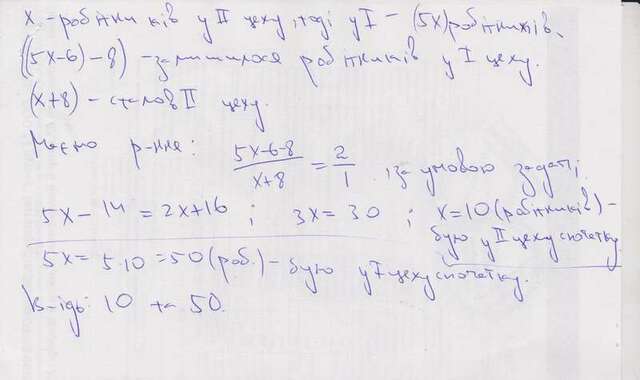 x - робітників у II цеху, тоді у I - (5x) робітників.
((5x-6)-8) - залишилося робітників у I цеху.
(x+8) - стало в II цеху.
Маємо р-ння: (5x-6-8)/(x+8) = 2/1 за умовою задачі;
5x - 14 = 2x+16 ; 3x = 30 ; x=10 (робітників) -
було у II цеху спочатку.
5x = 5·10 = 50 (роб.) - було у I цеху спочатку.
В-ідь: 10 та 50.